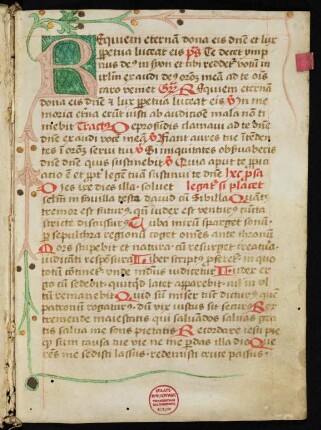 Requiem eternā dona eis dn̄e et lux
ꝑpetua luceat eis ps̄ Te decet ymp
nus deꝰ in syon et tibi reddetᷣ votū in
irl̄m exaudi deꝰ or̄oꝫ meā ad te oīs
caro veniet Gr̄ Requiem eternā
dona eis dn̄e ⁊ lux ꝑpetua luceat eis V̄ In me
moria et̄na erūt iusti ab audicōe mala nō ti
mebūt Tractꝰ De profūdis clamaui ad te dn̄e
dn̄e exaudi vocē meā V̄ Fiant aures tue ītēdē
tes ī or̄oꝫ serui tui V̄ Si iniquitates obseruaueris
dn̄e dn̄e quis sustinebit V̄ Quia aput te ꝓpiti
acio ē et ꝓpt̄ legē tuā sustinui te dn̄e
Dies ire dies illa soluet legatᷣ si placet
seclm̄ in fauilla teste dauid cū Sibilla Quātꝰ
tremor est futurꝰ qn̄ iudex est venturꝰ cūcta
stricte discussurꝰ Tuba mirū spargēs sonū
ꝑ sepulchra regionū coget om̄es ante thronū
Mors stupebit et natura cū resurget creatura
iudicāti respōsura Liber scriptꝰ ꝓferetᷣ in quo
totū cōtinetᷣ vnde mūdus iudicetᷣ Iudex er
go cū sedebit quicqd̄ latet apparebit nil in vl
tū remanebit Quid sum miser tūc dicturꝰ quē
patronū rogaturꝰ dū vix iustus sit securꝰ Rex
tremende maiestatis qui saluādos saluas gra
tis salua me fons pietatis Recordare iesu pie
qꝫ sum causa tue vie ne me ꝑdas illa die Que
rens me sedisti lassus redemisti crucē passus